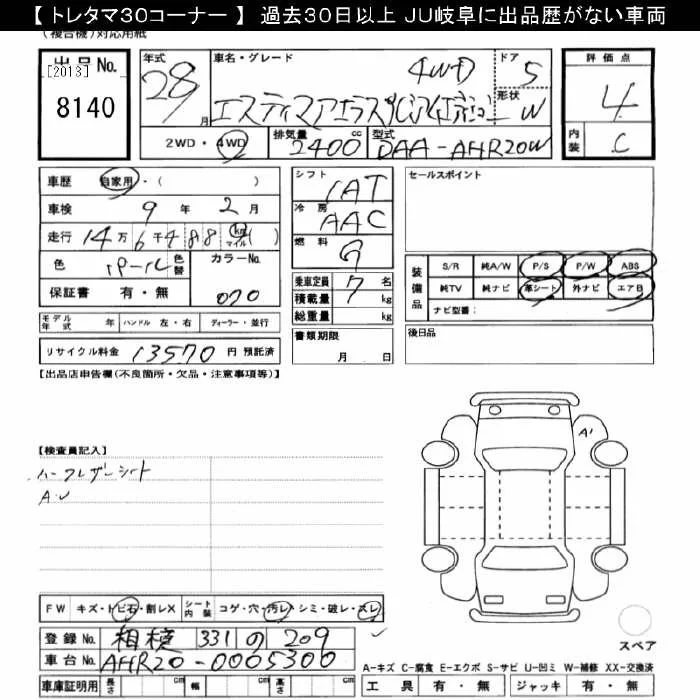 【 トレタマ30コーナー 】 過去30日以上 JU岐阜に出品歴がない車両
(複合機)対応用紙
出品No.
[2013]
8140
年式 28 月
車名・グレード 4WD
ドア 5
形状 W
2WD・4WD
排気量 2400 cc
型式 DAA-AHR20W
評価点
4
内装 C
車歴 自家用・( )
車検 9 年 2 月
走行 14万 6千4 8 8 km マイル ( )
色 パール 色替
カラーNo. 070
保証書 有・無
シフト IAT
冷房 AAC
燃料 G
乗車定員 7 名
積載量 kg
総重量 kg
セールスポイント
装備品
S/R 純A/W P/S P/W ABS
純TV 純ナビ 革シート 外ナビ エアB
ナビ型番:
モデル年式 年 ハンドル 左・右 ディーラー・並行
書類期限
月 日
後日品
リサイクル料金 13570 円 預託済
【出品店申告欄(不良箇所・欠品・注意事項等)】
【検査員記入】
ハーフレザーシート
A・U
A1
FW キズ・トビ石・割レX シート内装 コゲ・穴・汚レ・シミ・破レ・スレ
登録No. 相模 331 の 209
車台No. AHR20-0005300
車庫証明用 長さ cm 幅 cm 高さ cm
スペア
A-キズ C-腐食 E-エクボ S-サビ U-凹ミ W-補修 XX-交換済
工具 有・無 ジャッキ 有・無